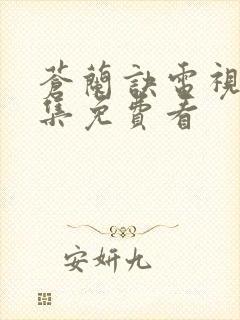 蒼蘭訣電視
集免費看
安妍九